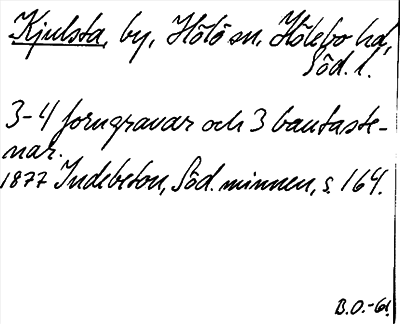 Kjulsta, by, Hölö sn, Hölebo hd,
Söd. l.
3-4 forngravar och 3 bautaste-
nar.
1877 Indebetou, Söd. minnen, s. 164.
B.O.-61.